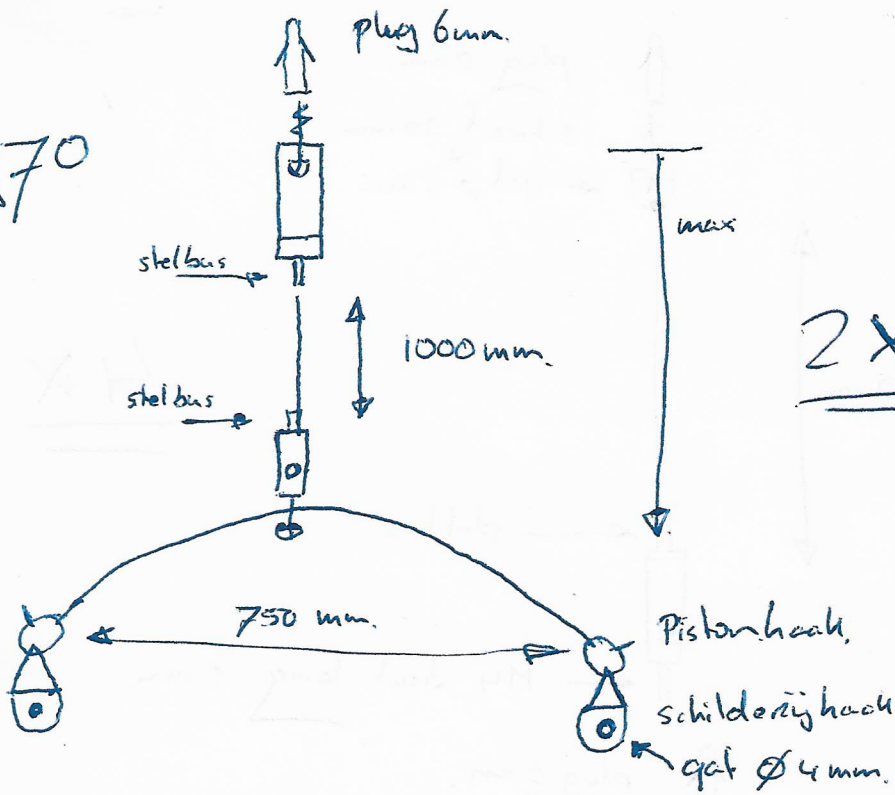 plug 6mm.
70
stelbus
maxi
1000 mm.
2 X
stelbus
750 mm.
Pistonhaak.
schilderijhaak
gat Ø 4 mm.